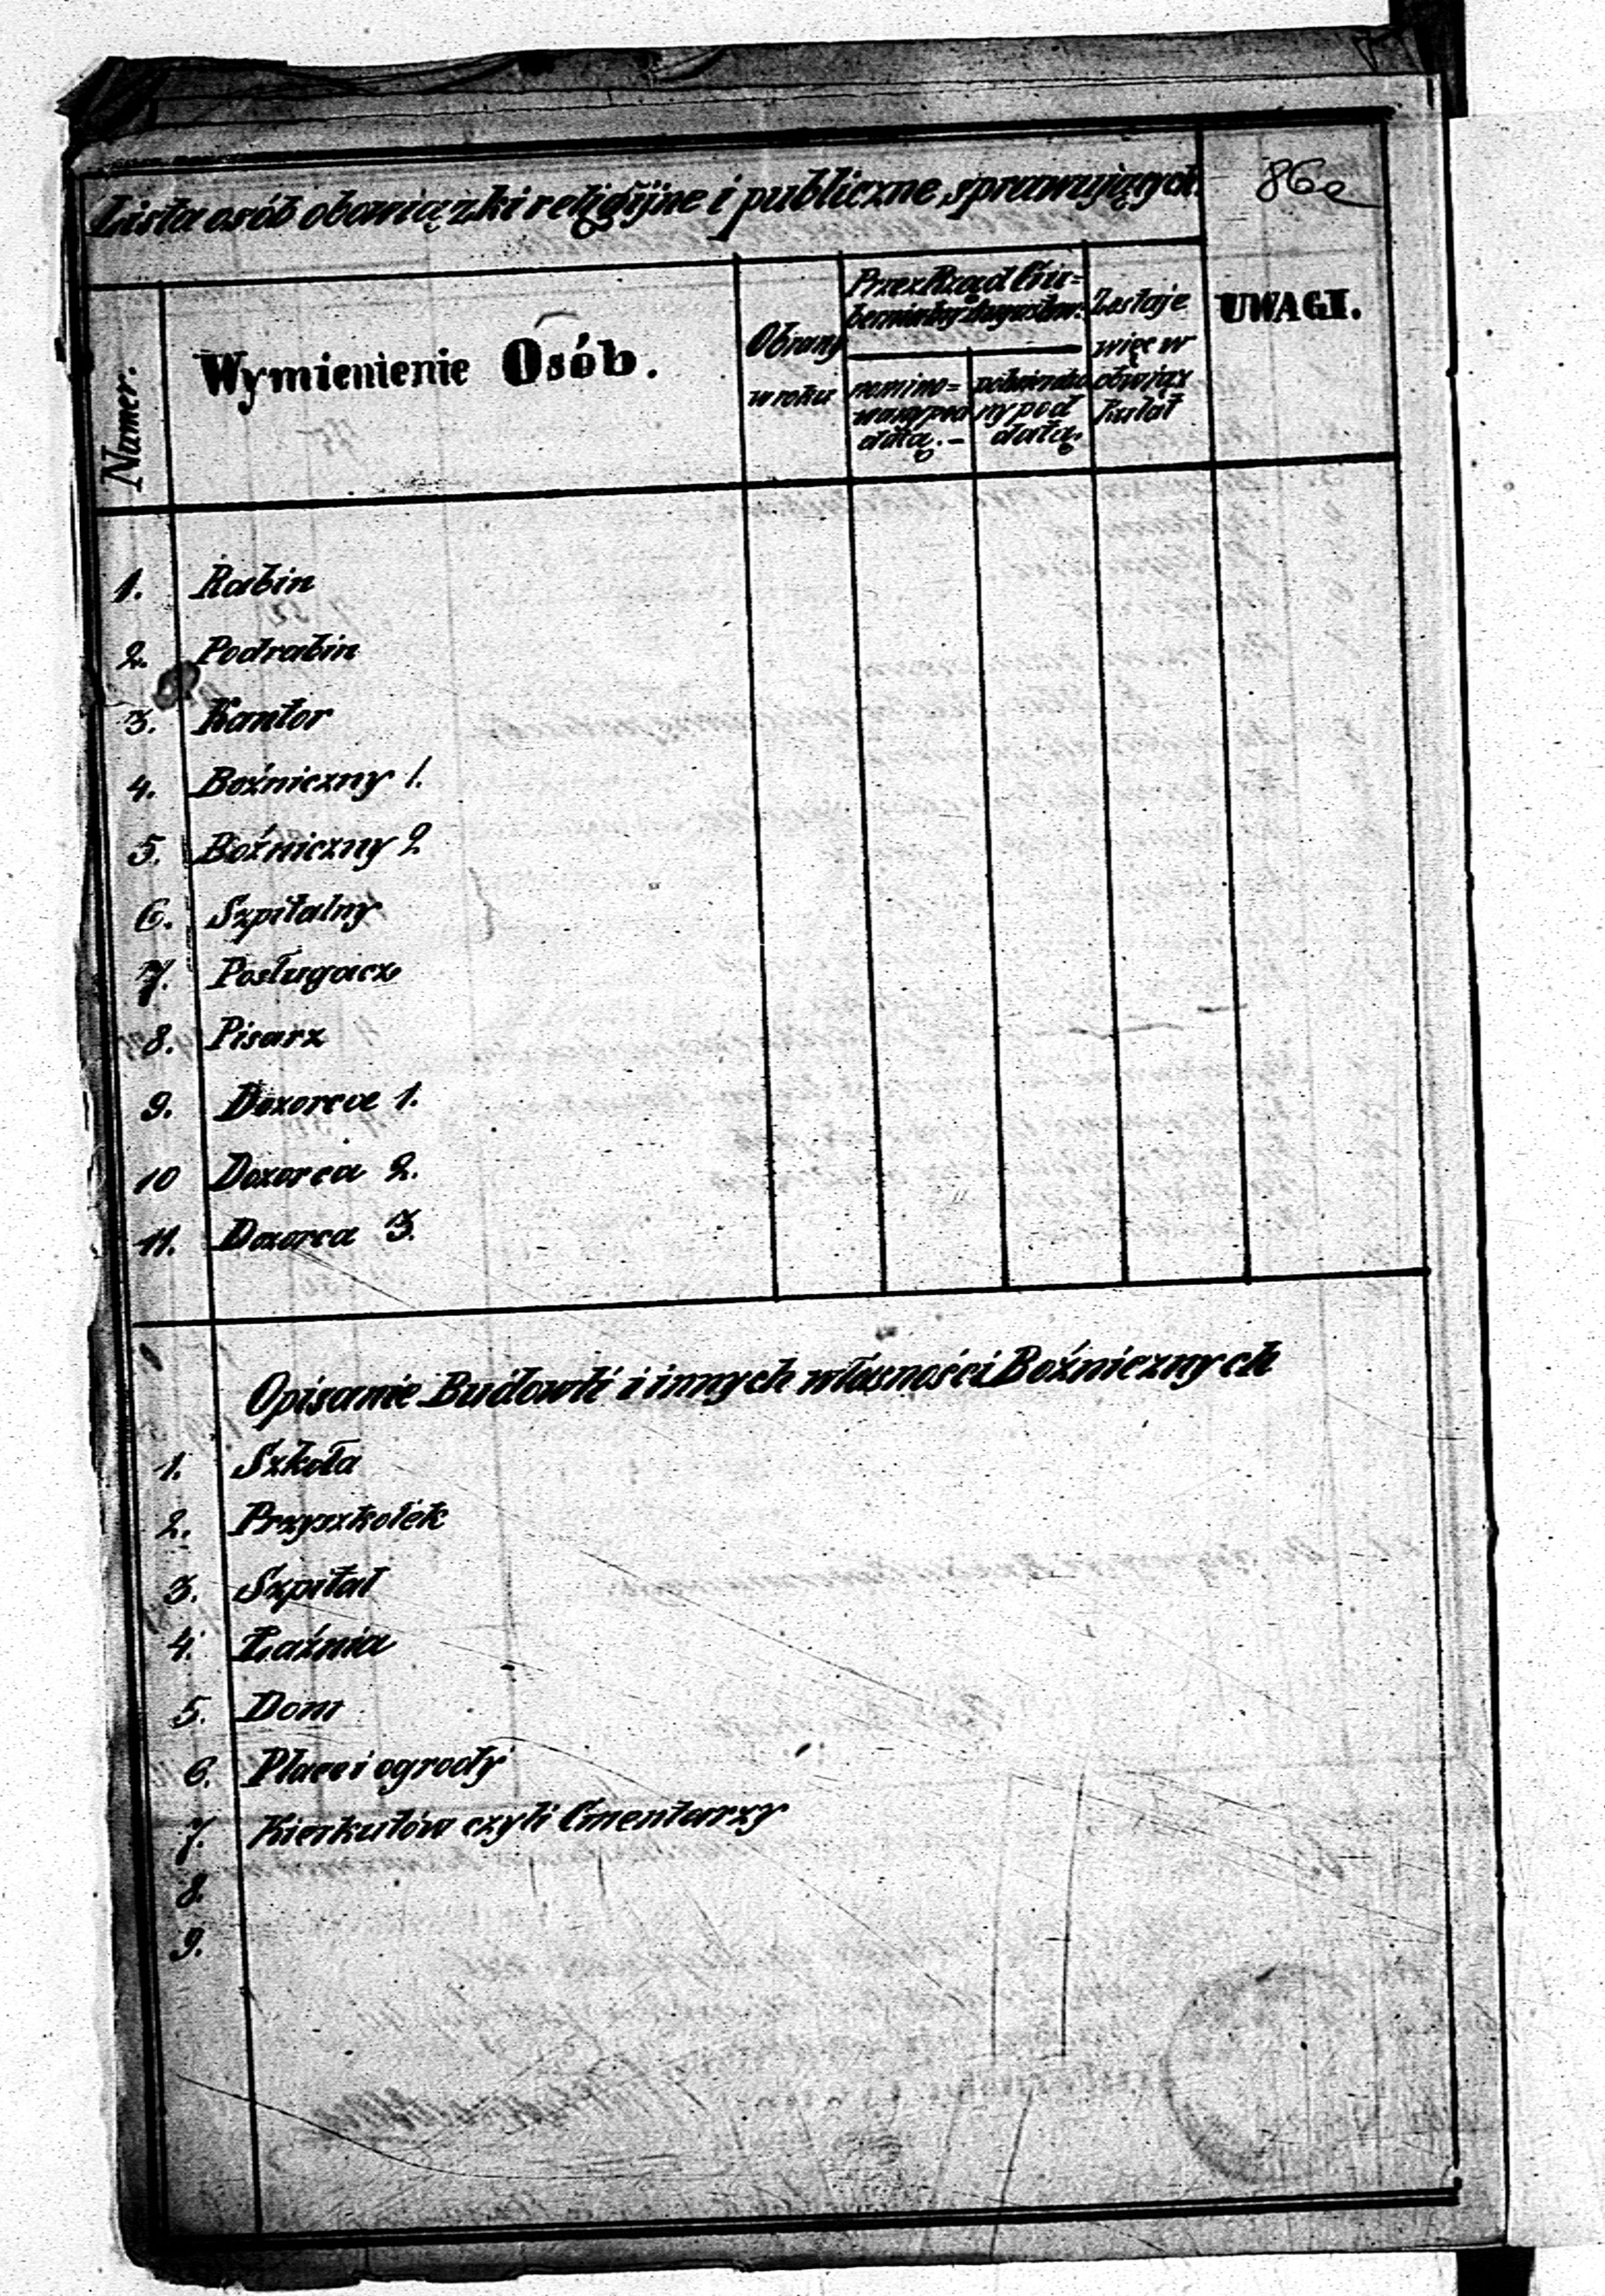 86a
Lista osób obowiązki religijne i publiczne sprawujących.
Numer.
Wymienienie Osób.
Obrany
w roku
Przez Rząd Gu-
bernialny Augustow:
nomino-
wany pod
datą.-
potwierdzo
ny pod
datą.
Zostaje
więc w
obowiąz
ku lat
UWAGI.
1. Rabin
2. Podrabin
3. Kantor
4. Bożniczny 1.
5. Bożniczny 2
6. Szpitalny
7. Posługacz
8. Pisarz
9. Dozorca 1.
10 Dozorca 2.
11. Dozorca 3.
Opisanie Budowli i innych własności Bożnicznych
1. Szkoła
2. Przyszkołek
3. Szpital
4. Łaźnia
5. Dom
6. Place i ogrody
7. Kierkutów czyli Cmentarzy
8.
9.